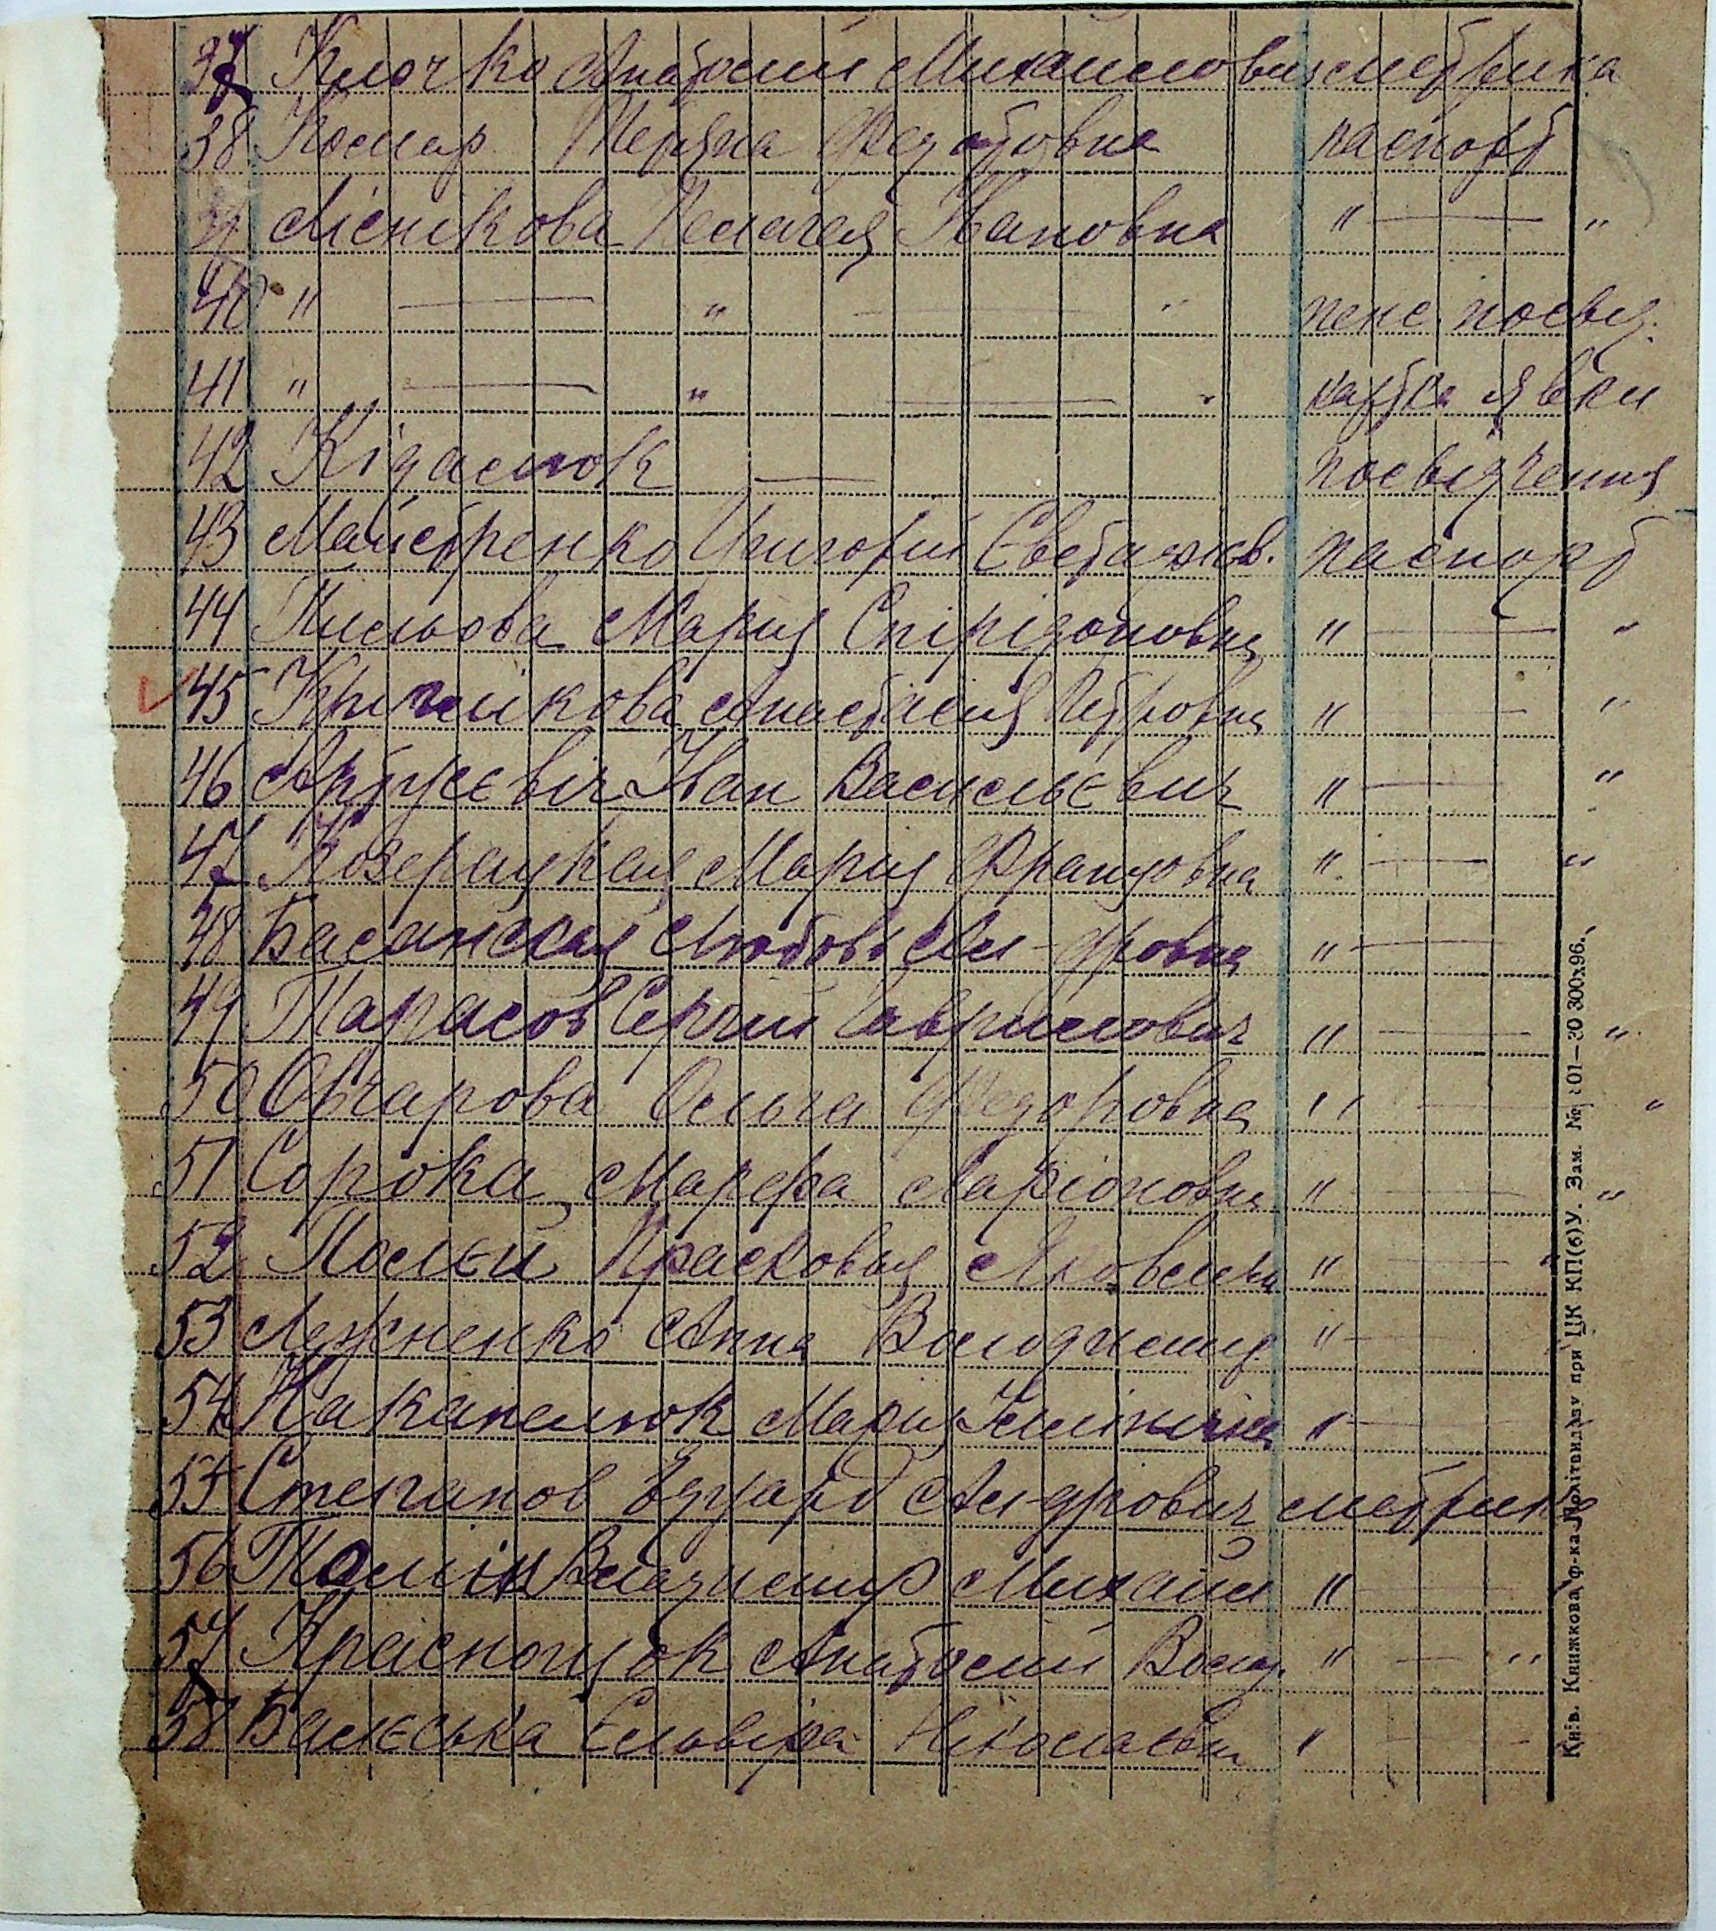 37 Клочко Анатолий Михаилович метрика
38 Комар Тетяна Федотовна паспорт
39 Меснікова Пелагея Ивановна " — "
40 " — " — " пенс. посвід.
41 " — " — " картка явки
42 Кідалюк — посвідчення
43 Майстренко Григорий Євстахов. паспорт
44 Кисльова Мария Спірідоновна " — "
45 Кричикова Анастасия Петровна " — "
46 Артусєвіч Иван Васильєвич " — "
47 Козерацкая Мария Францовна " — "
48 Басанская Любовь Ал-дровна " —
49 Тарасов Сергий Гаврилович " — "
50 Овчарова Ольга Федоровна " — "
51 Сорока Марфа Ларіоновна " — "
52 Полєй Прасковья Яковлевна " — "
53 Лежненко Анна Володимир. " —
54 Какапелюк Мария Іллінічна " —
55 Степанов Едуард Ал-дрович метрика
56 Томін Владимир Михайл " —
57 Краснощок Анатолий Волод. " — "
58 Балєська Єльвіра Ніколаєвна " —
Київ. Книжкова ф-ка Політвидаву при ЦК КП(б)У. Зам. № 101—30 300х96.